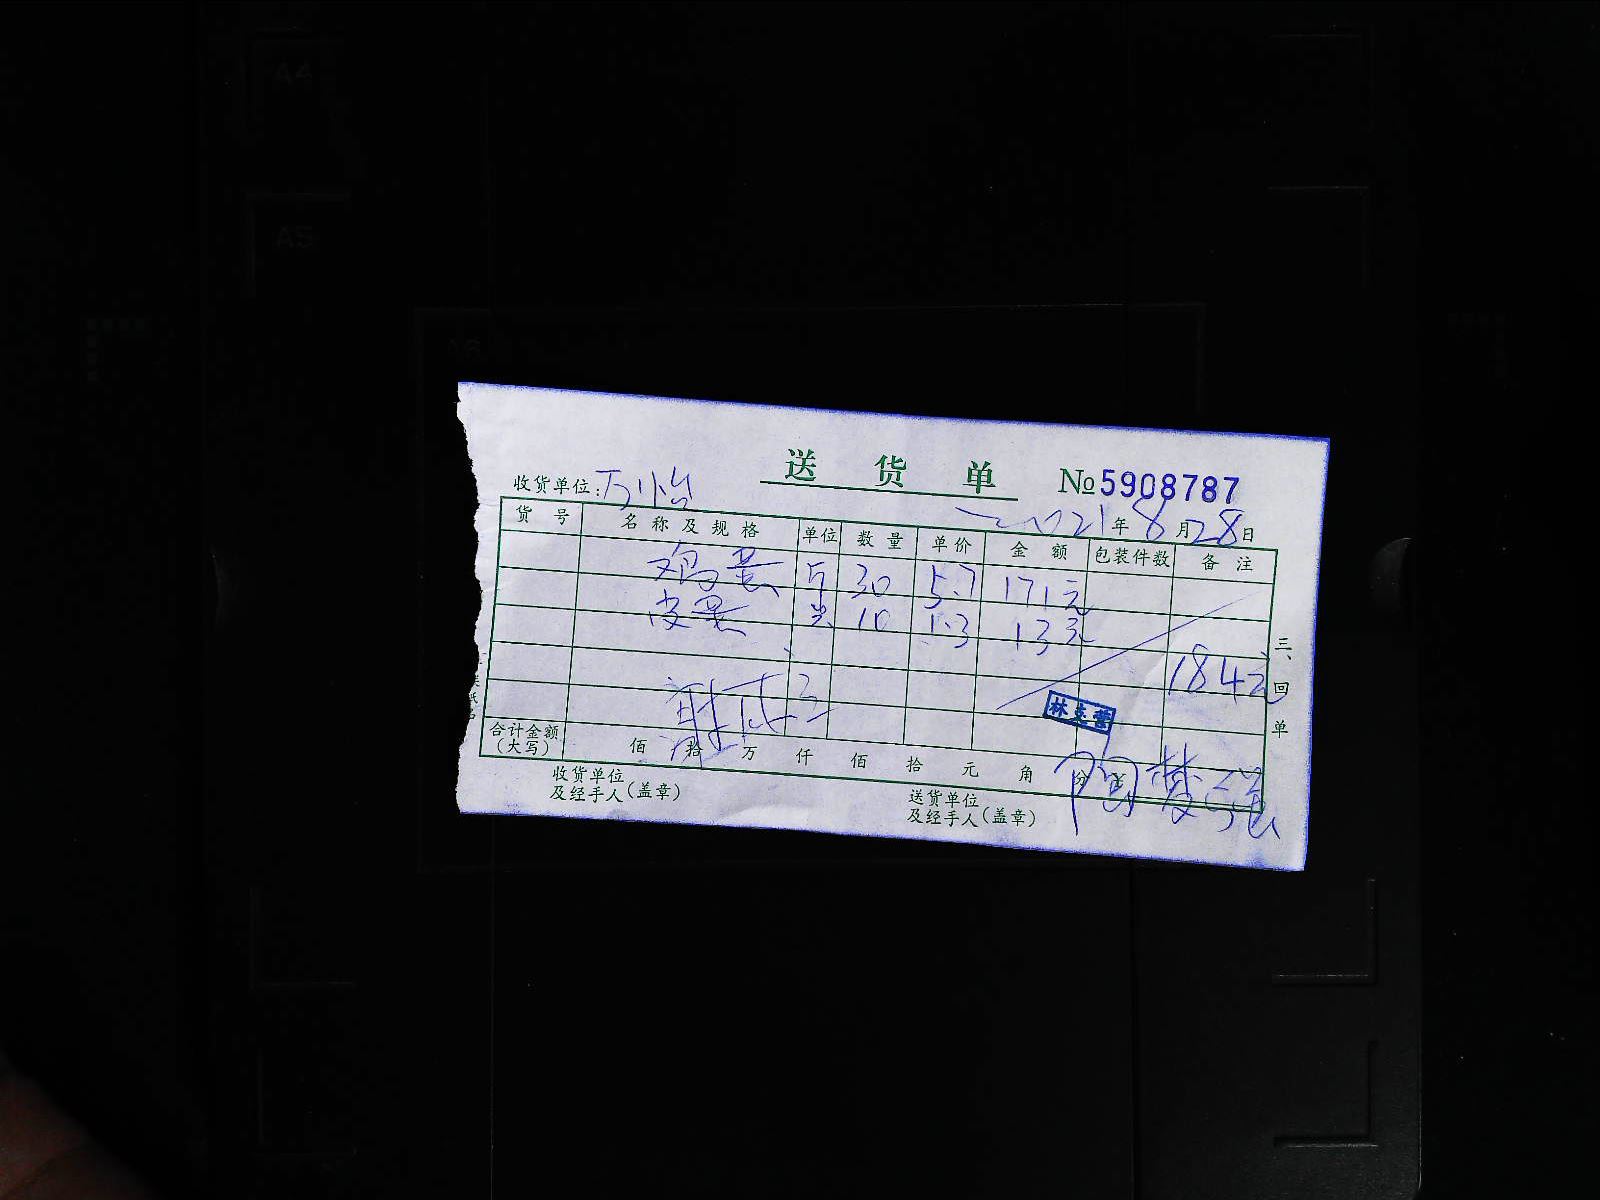 送货单 №5908787
收货单位:万怡
2021年8月28日
货号 名称及规格 单位 数量 单价 金额 包装件数 备注
鸡蛋 斤 30 5.7 171元
皮蛋 10 1.3 13元
184元
合计金额(大写) 佰 拾 万 仟 佰 拾 元 角 分
收货单位及经手人(盖章)
送货单位及经手人(盖章)
三、回单
A4
A5